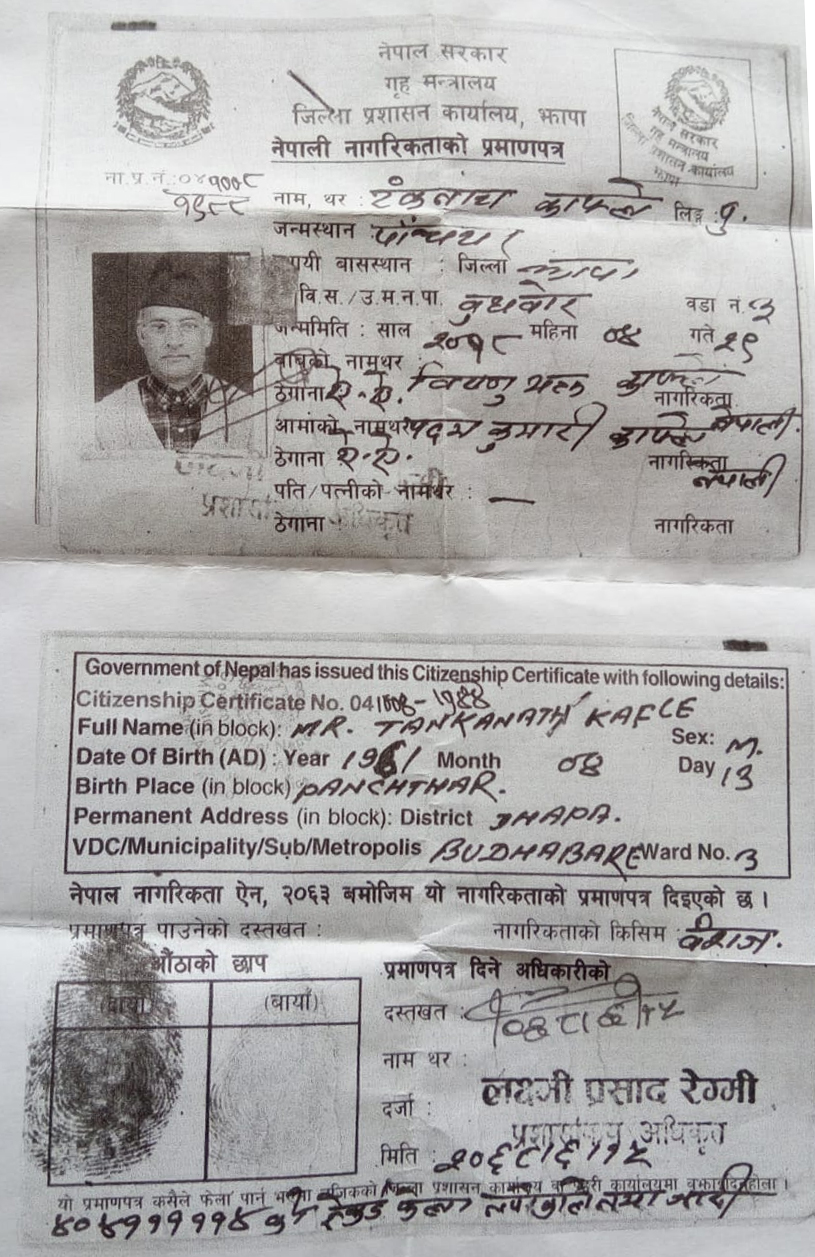 नेपाल सरकार
गृह मन्त्रालय
जिल्ला प्रशासन कार्यालय, झापा
नेपाली नागरिकताको प्रमाणपत्र
नेपाल सरकार
गृह मन्त्रालय
जिल्ला प्रशासन कार्यालय
झापा
ना.प्र.नं.:०४१००८
१९८८
नाम, थर : टंकनाथ काफ्ले लिङ्ग : पु.
जन्मस्थान पाँचथर
स्थायी बासस्थान : जिल्ला झापा
वि.स./उ.म.न.पा. बुधबारे वडा नं. ३
जन्ममिति : साल २०१८ महिना ०४ गते २९
बाबुको नामथर
ठेगाना ऐ.ऐ. विष्णु भक्त काफ्ले नागरिकता
आमाको नामथर पदम कुमारी काफ्ले नेपाली
ठेगाना ऐ.ऐ. नागरिकता नेपाली
पति/पत्नीको नामथर : —
प्रशासकीय अधिकृत
ठेगाना : नागरिकता
Government of Nepal has issued this Citizenship Certificate with following details:
Citizenship Certificate No. 041008-1988
Full Name (in block): MR. TANKANATH KAFLE
Sex: M.
Date Of Birth (AD) : Year 1961 Month 08 Day 13
Birth Place (in block) PANCHTHAR.
Permanent Address (in block): District JHAPA.
VDC/Municipality/Sub/Metropolis BUDHABARE Ward No. 3
नेपाल नागरिकता ऐन, २०६३ बमोजिम यो नागरिकताको प्रमाणपत्र दिइएको छ ।
प्रमाणपत्र पाउनेको दस्तखत :
नागरिकताको किसिम वंशज.
औंठाको छाप
(दायाँ) (बायाँ)
प्रमाणपत्र दिने अधिकारीको
दस्तखत :
नाम थर :
लक्ष्मी प्रसाद रेग्मी
दर्जा :
प्रशासकीय अधिकृत
मिति : २०६८।६।१५
यो प्रमाणपत्र कसैले फेला पार्नु भएमा नजिकको जिल्ला प्रशासन कार्यालय वा प्रहरी कार्यालयमा बुझाइदिनुहोला ।